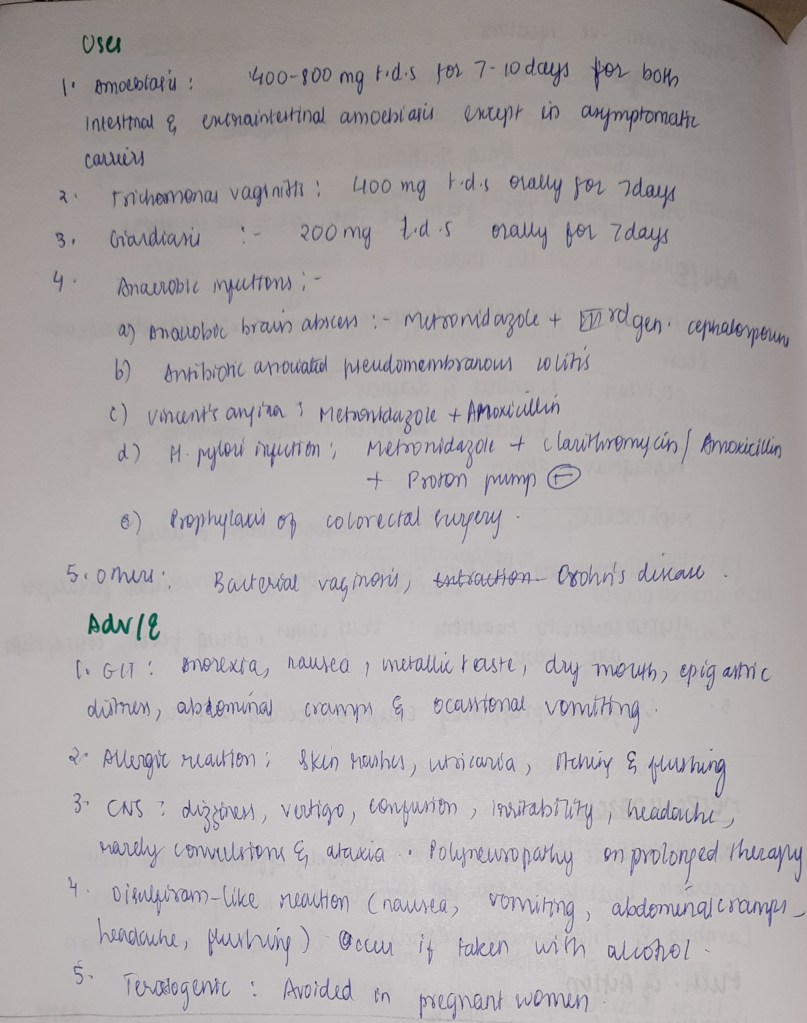 Uses
1. Amoebiasis : 400-800 mg t.d.s for 7-10 days for both
Intestinal & extraintestinal amoebiasis except in asymptomatic
carriers
2. Trichomonas vaginitis : 400 mg t.d.s orally for 7days
3. Giardiasis :- 200 mg t.d.s orally for 7days
4. Anaerobic infections :-
a) Anaerobic brain abscess :- Metronidazole + III rd gen. cephalosporins
b) Antibiotic associated pseudomembranous colitis
c) Vincent's angina : Metronidazole + Amoxicillin
d) H. pylori infection : Metronidazole + Clarithromycin / Amoxicillin
+ Proton pump ⊖
e) Prophylaxis of colorectal surgery.
5. Others : Bacterial vaginosis, extraction Crohn's disease.
Adv/E
1. GIT : Anorexia, nausea, metallic taste, dry mouth, epigastric
distress, abdominal cramps & ocassional vomiting.
2. Allergic reaction : Skin rashes, urticaria, itching & flushing
3. CNS : dizziness, vertigo, confusion, irritability, headache,
rarely convulsions & ataxia. Polyneuropathy on prolonged therapy
4. Disulfiram-like reaction (nausea, vomiting, abdominal cramps,
headache, flushing) Occur if taken with alcohol.
5. Teratogenic : Avoided in pregnant women.